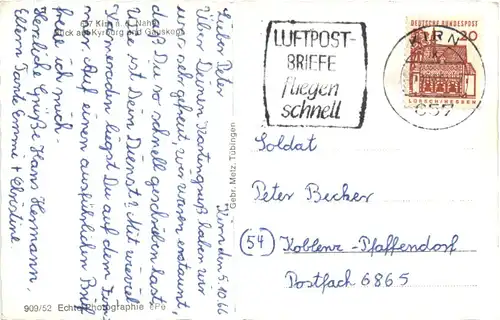 657 Kirn a. d. Nahe
Blick auf Kyrburg und Gauskopf
Kirn den 5.10.66
Lieber Peter
Über Deinen Kartengruß haben wir
uns sehr gefreut, wir waren erstaunt,
daß Du so schnell geschrieben hast.
Wie ist Dein Dienst? Mit wieviel
Kameraden liegst Du auf dem Zim
mer. Auf einen ausführlichen Brief
freue ich mich.
Herzliche Grüße Hans Hermann,
Eltern Tante Emmi + Christine
909/52 Echte Photographie
Gebr. Metz, Tübingen
LUFTPOST-
BRIEFE
fliegen
schnell
DEUTSCHE BUNDESPOST
20
LORSCH/HESSEN
KIRN
657
Soldat
Peter Becker
(54) Koblenz-Pfaffendorf
Postfach 6865